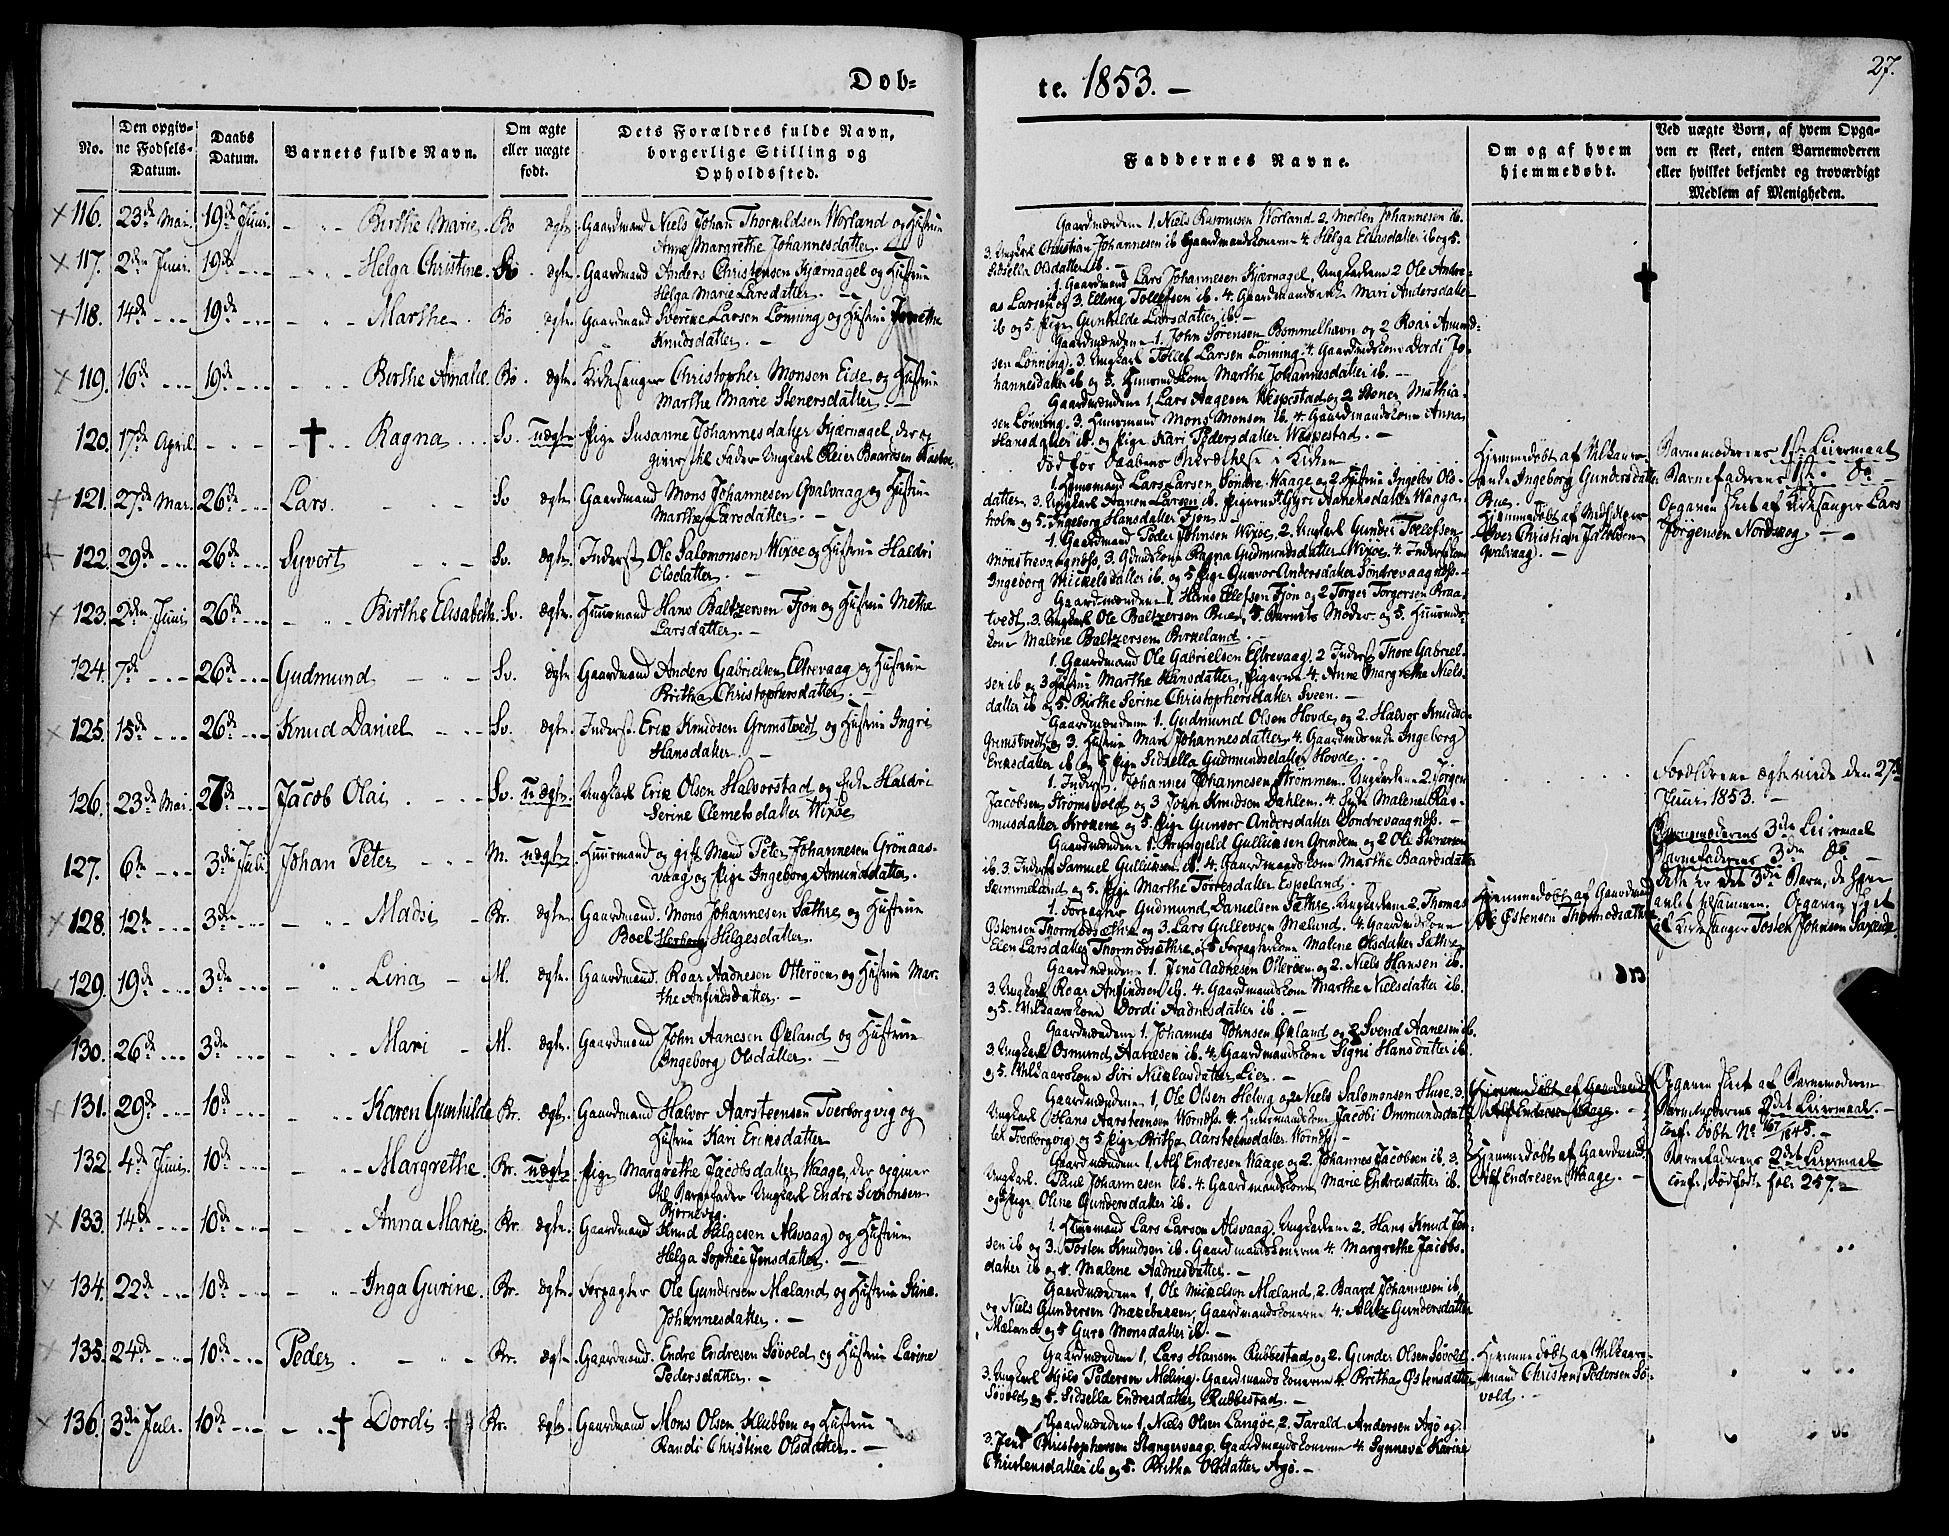 27.
Døb-
te. 1853. —
No.
Den opgiv-
ne Fødsels-
Datum.
Daabs
Datum.
Barnets fulde Navn.
Om ægte
eller uægte
født.
Dets Forældres fulde Navn,
borgerlige Stilling og
Opholdssted.
Faddernes Navne.
Om og af hvem
hjemmedøbt.
Ved uægte Børn, af hvem Opga-
ven er skeet, enten Barnemoderen
eller hvilket bekjendt og troværdigt
Medlem af Menigheden.
116. 23de Mai. 19de Juni. Birthe Marie. Bö ægte. Gaardmand Niels Johan Thorkildsen Worland og Hustrue
Anna Margrethe Johannesdatter. —
Gaardmændene 1, Niels Rasmusen Worland 2. Morten Johannesen ib.
3. Ungkarl Christian Johannesen ib Gaardmandskonerne 4 Helga Eliasdatter ib og 5.
Sidsella Olsdatter ib. —
117. 2den Juni. 19de Helga Christine. ægte. Gaardmand Anders Christensen Kjærnagel og Hustrue
Helga Marie Larsdatter. —
1. Gaardmand Lars Johannesen Kjærnagel, Ungkarlene 2 Ole Andre-
as Larsen og 3. Elling Tollefsen ib. 4. Gaardmandsenke Mari Andersdatter
ib og 5. Pige Gunhilde Larsdatter ib. —
118. 14de 19de Marthe. Bö ægte. Gaardmand Sverine Larsen Lönning og Hustrue
Knudsdatter. —
Gaardmændene 1. John Sörensen Bommelhavn og 2 Roar Amund-
sen Lönning. 3. Ungkarl Tollef Larsen Lönning. 4. Gaardmdskone Dordi Jo-
hannesdatter ib og 5. Huusmdskone Marthe Johannesdatter ib. —
119. 16de 19de Birthe Amalie. Bö. ægte. Kirkesanger Christopher Monsen Eide og Hustrue
Marthe Marie Stenersdatter. —
Gaardmændene 1, Lars Aagesen Wespestad og 2 Stener Mathia-
sen Lönning. 3. Huusmand Mons Monsen ib. 4. Gaardmandskone Anna
Hansdatter ib. og Pige Kari Pedersdatter Wespestad. —
120. 17de April. Ragna Sv. uægte Pige Susanne Johannesdatter Kjærnagel, der op
giver til Fader Ungkarl Reier Baardsen
Död før Daabens Stadfestelse i Kirken
Hjemmedöbt af
Ingeborg Gundersdatter
Rue.
Barnemoderens 1ste Leiermaal
Barnefaderens 1ste do —
121. 27de Mai. 26de Lars. Sv ægte. Gaardmand Mons Johannesen Qvalvaag og Hustrue
Marthe Larsdatter. —
1. Huusmand Lars Larsen, Söndre Waage og 2 Hustrue Ingebor Ols-
datter, 3. Ungkarl Aanen Larsen ib. Pigerne 4 Guri Aadnesdatter Waage-
holm og 5. Ingeborg Hansdatter Fjon. —
Hjemmedöbt af Medhjelper
Iver Christian Jakobsen
Qvalvaag. —
Opgaven skeet af Kirkesanger Lars
Jörgensen Nordskog —
122. 29de 26de Syvert Sv. ægte. Inderst Ole Salomonsen Wixöe og Hustrue Haldri
Olsdatter. —
1. Gaardmand Peder Johnsen Wixöe, 2. Ungkarl Gunder Tollefsen
Mönstrevaagnöss, 3. Gdmdskone Ragna Gudmundsdatter Wixöe. 4. Inderstkone
Ingeborg Mickelsdatter ib. og 5 Pige Gunvor Andersdatter Söndrevaagnöss. —
123. 2den Juni. 26de Birthe Elisabeth. Sv. ægte. Huusmand Hans Baltzersen Fjon og Hustrue Methe
Larsdatter. —
Gaardmændene 1. Hans Ellefsen Fjon og 2 Torger Torgersen Braa-
tvedt. 3. Ungkarl Ole Baltzersen Rue, 4 Barnets Moder og 5. Huusmds-
kone Malene Baltzersen Birkeland.
124. 7de 26de Gudmund Sv. ægte. Gaardmand Anders Gabrielsen Eltrevaag og Hustrue
Britha Christophersdatter. —
1. Gaardmand Ole Gabrielsen Eltrevaag, 2 Inderst Thore Gabriel-
sen ib og 3 Hustrue Marthe Hansdatter, Pigerne 4. Anne Margrethe Niels-
datter ib og 5. Birthe Serine Christophersdatter Sveen. —
125. 15de 26de Knud Daniel Sv. ægte. Inderst. Erik Knudsen Grimstvedt og Hustrue Ingri
Hansdatter. —
Gaardmændene 1. Gudmund Olsen Hovde og 2. Halvor Knudsen
Grimstvedt, og 3. Hustrue Mari Johannesdatter, 4. Gaardmdsenke Ingeborg
Eriksdatter ib og 5 Pige Sidsella Gudmundsdatter Hovde. —
126. 23de Mai. 27de Jacob Olai Sv. uægte. Ungkarl Erik Olsen Halvorstad og Enke Haldri
Serine Clemetsdatter Wixöe
1. Inderst. Johannes Johannesen Strömmen, Ungkarlene 2. Jörgen
Jacobsen Strömsvold, og 3. John Knudsen Dahlen. 4. Enke Malene Ras-
musdatter Krokene og 5. Pige Gunvor Andersdatter Söndrevaagnöss. —
Forældrene ægteviede den 27de
Juni 1853. —
127. 6te 3die Juli. Johan Peter M. uægte Huusmand og gift Mand Peter Johannesen Grönaas-
vaag og Pige Ingeborg Amundsdatter.
Gaardmændene 1. Gulliksen Grinden og 2 Ole Stenersen
ib. 3. Inderst Samuel Gulliksen ib. 4. Gaardmandskone Marthe Baardsdatter
Skimmeland og 5. Pige Marthe Torresdatter Espeland.
Barnemoderens 3die Leiermaal
Barnefaderens 3die do —
Dette er det 3die Barn, de have
avlet tilsammen. Opgaven skeet
af Kirkesanger Tosten Johnsen
128. 12te 3die Madsi Br. ægte. Gaardmand. Mons Johannesen Sæthre og Hustrue
Boel Herborg Helgesdatter.
1. Forpagter Gudmund Danielsen Sæthre, Ungkarlene 2. Thomas
Östensen Thormodsæthre og 3. Lars Gullevsen Mælund. 4. Gaardmdskone
Elen Larsdatter Thormodsæthre, og 5 Forpagterkone Malene Olsdatter Sæthre
Hjemmedöbt af Gaardmand
Ole Östensen Thormodsæthre
129. 19de 3die Lina M. ægte. Gaardmand. Roar Aadnesen Otteröen og Hustrue Mar-
the Anfindsdatter. —
Gaardmændene 1. Jens Aadnesen Otteröen og 2. Niels Hansen ib.
3. Ungkarl Roar Anfindsen ib. 4. Gaardmandskone Marthe Nielsdatter ib.
og 5. Vilkaarskone Dordi Aadnesdatter ib. —
130. 26de 3die Mari M. ægte. Gaardmand John Aanesen Økland og Hustrue
Ingeborg Olsdatter. —
Gaardmændene 1. Johannes Johnsen Økland og 2 Svend Aanesen ib.
3. Ungkarl Osmund Aanesen ib. 4. Gaardmandskone Signi Hansdatter ib.
og 5. Vilkaarskone Siri Nicklasdatter Lier. —
131. 29de 10de Karen Gunhilde Br. ægte. Gaardmand Halvor Aarsteensen Tverborgvig og
Hustrue Kari Eriksdatter
Gaardmændene 1, Ole Olsen Helvig og 2 Niels Salomonsen Huse. 3.
Ungkarl Hans Aarsteensen Wornöss. 4 Huusmandskone Jacobi Ommundsdat-
ter Tverborgvig og 5 Pige Britha Aarsteinsdatter Wornöss. —
Hjemmedöbt af Gaardmand
Alf Endresen Waage. —
132. 4de Juni. 10de Margrethe Br. uægte. Pige Margrethe Jacobsdatter Waage, der opgiver
til Barnefader Ungkarl Endre Simonsen
Björnevig.
Gaardmændene 1, Alf Endresen Waage og 2. Johannes Jacobsen ib. 3.
Ungkarl. Paul Johannesen ib. 4. Gaardmandskone Marie Endresdatter ib.
og Pige Oline Gundersdatter ib.
Hjemmedöbt af Gaardmand
Alf Endresen Waage. —
Opgaven skeet af Barnemoderen
Barnemoderens 2det Leiermaal. —
conf. Döbte No 167/1848. —
Barnefaderens 2det Leiermaal
conf. Dödfödt fol. 257. —
133. 14de 10de Anna Marie. Br. ægte. Gaardmand Knud Helgesen Alsvaag og Hustrue
Helga Sophie Jensdatter. —
1. Huusmand Lars Larsen Alsvaag, Ungkarlene 2. Hans Knud Jen-
sen ib og 3. Tosten Knudsen ib. Gaardmandskonerne 4. Margrethe Jacobs-
datter ib og 5. Malene Aadnesdatter. —
134. 22de 10de Inga Gurine. Br. ægte. Forpagter Ole Gundersen Mæland og Hustrue Stine
Johannesdatter. —
Gaardmændene 1, Ole Mickelsen Mæland, 2. Baard Johannesen ib
og Niels Gundersen Gaardmandskonerne 4. Gundersdatter
Mæland og 5 Guro Monsdatter ib. —
135. 24de 10de Peder Br. ægte. Gaardmand. Endre Endresen Sövold og Hustrue Larine
Pedersdatter. —
Gaardmændene 1, Lars Hansen Rubbestad og 2. Gunder Olsen Sövold.
3. Ungkarl Niels Pedersen Meling. Gaardmandskonerne 4. Britha Östensdatter
Sövold og 5. Sidsella Endresdatter Rubbestad. —
Hjemmedöbt af Vilkaars-
mand Christen Pedersen Sö-
vold. —
136. 3die Juli. 10de Dordi Br. ægte. Gaardmand Mons Olsen Klubben og Hustrue
Randi Christine Olsdatter. —
Gaardmændene 1, Niels Olsen Langöe, 2. Tarald Andersen Agö og
3. Jens Christophersen Stangervaag. Gaardmandskonerne 4. Synneva Karine
Christensdatter ib og 5. Britha Olsdatter Agö. —